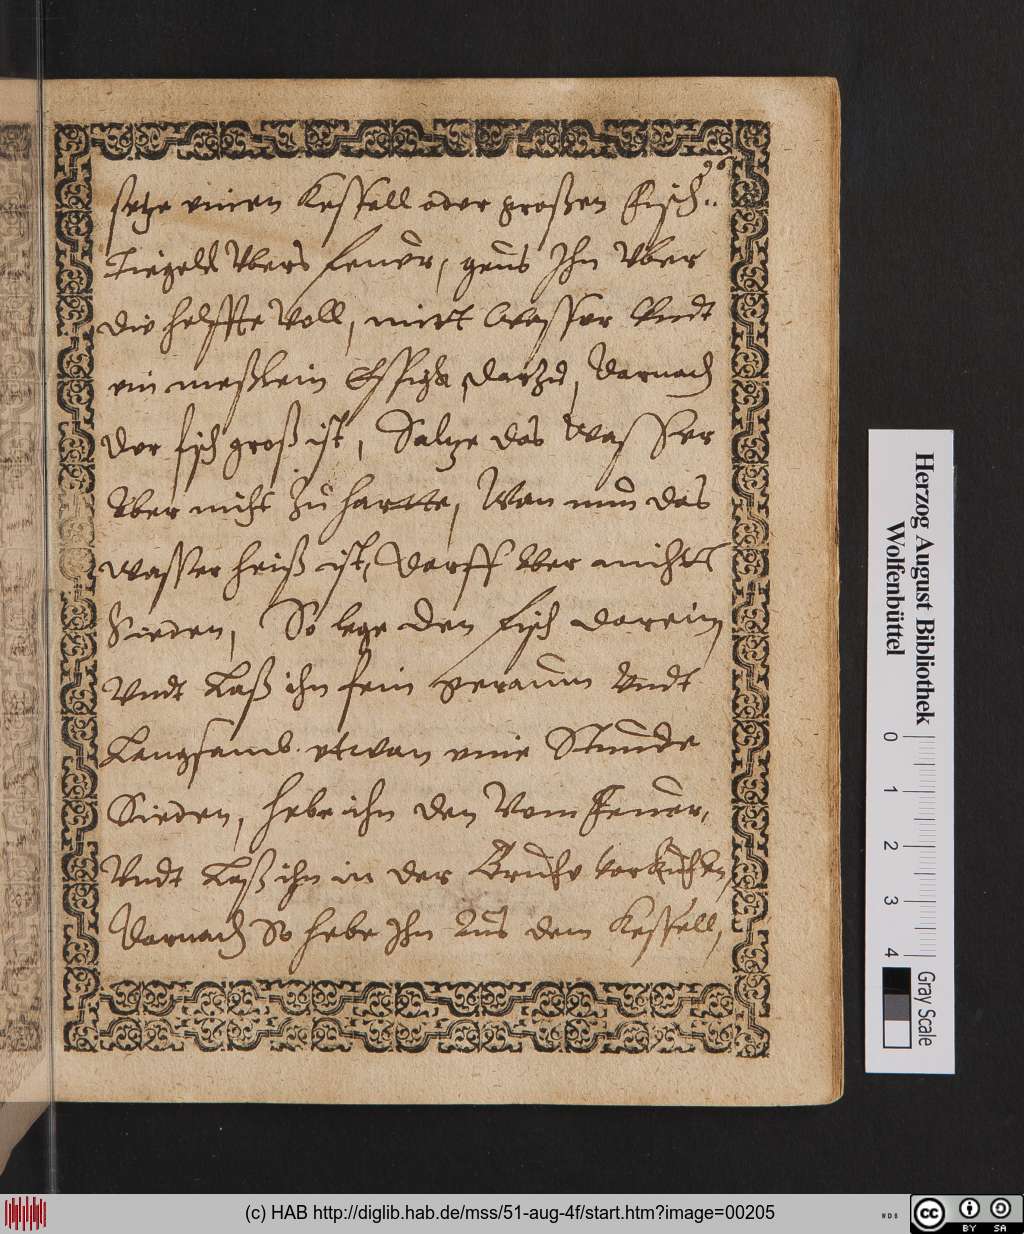 96
setze einen Kessell oder großen Fisch=
Tiegell Vbers feuer, geus Ihn Vber
die helffte Voll, mitt Wasser Vndt
ein meßlein Essigk darzu, darnach
der fisch groß ist, Saltze das Wasser
Aber nicht zu hartte, Wan nun das
wasser heiß ist, darff Aber nichtt
Sieden, So lege den fisch darein
Vndt Laß ihn fein geraum Vndt
Langsamb etwan eine Stunde
Sieden, hebe ihn den Vom Feuer,
Vndt Laß ihn in der Bruhe verkuhlen,
Darnach So hebe Ihn Aus dem Kessell,
Herzog August Bibliothek
Wolfenbüttel
0 1 2 3 4
Gray Scale
(c) HAB http://diglib.hab.de/mss/51-aug-4f/start.htm?image=00205
WDB
cc BY SA